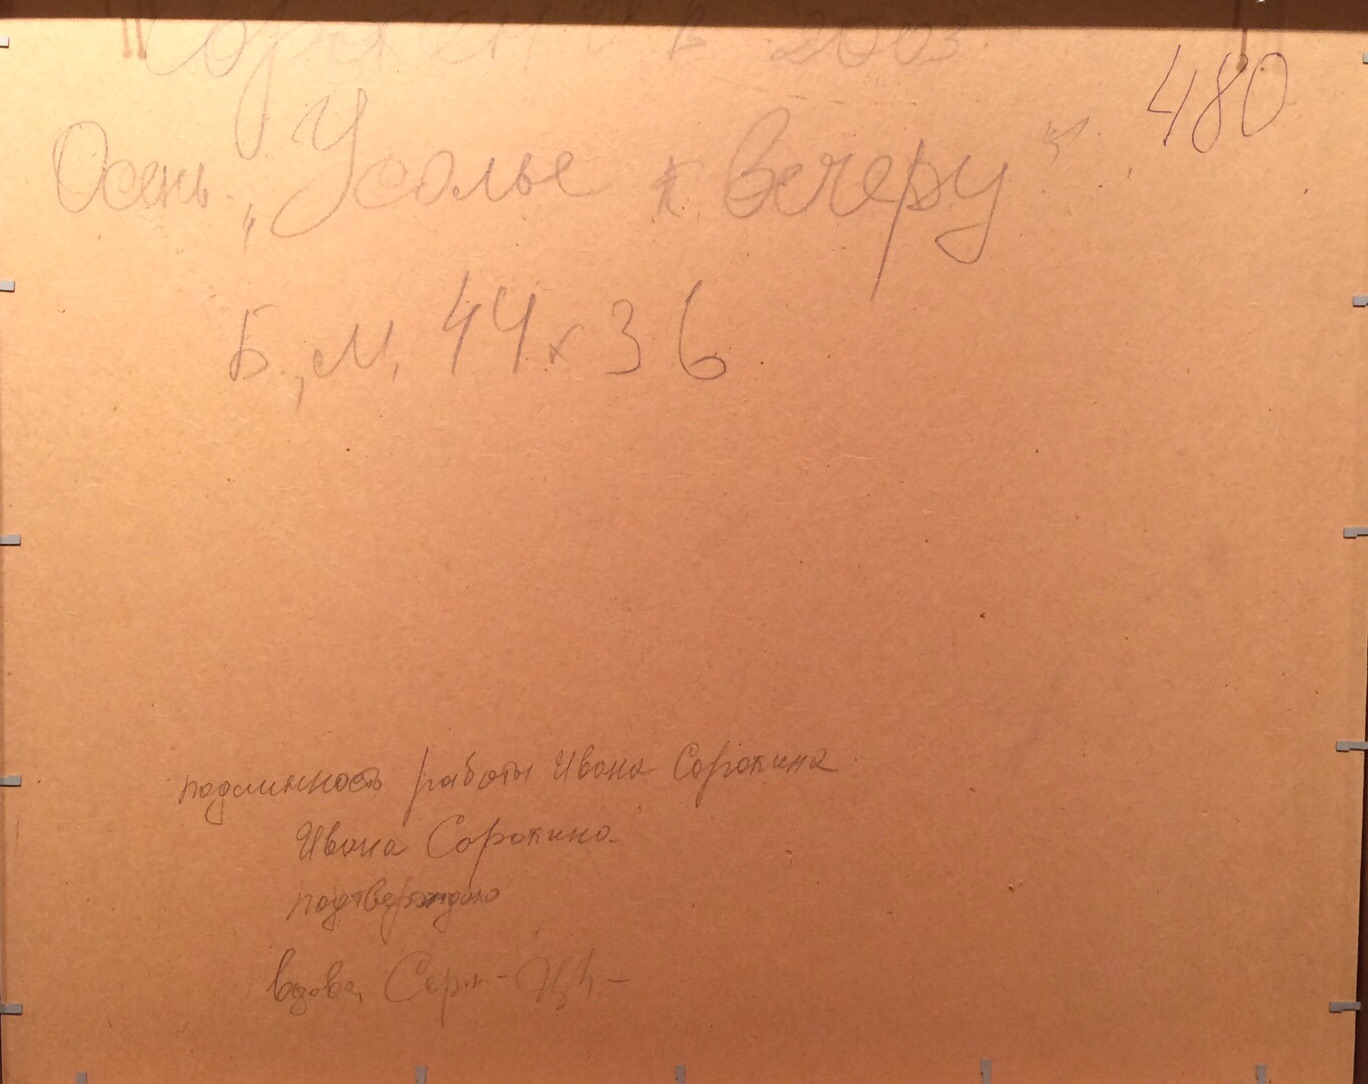 в 2003
480
Осень „Усолье к вечеру"
Б., м, 44 х 36
подлинность работы Ивана Соропина
Ивана Соропина
подтверждаю
вдова,